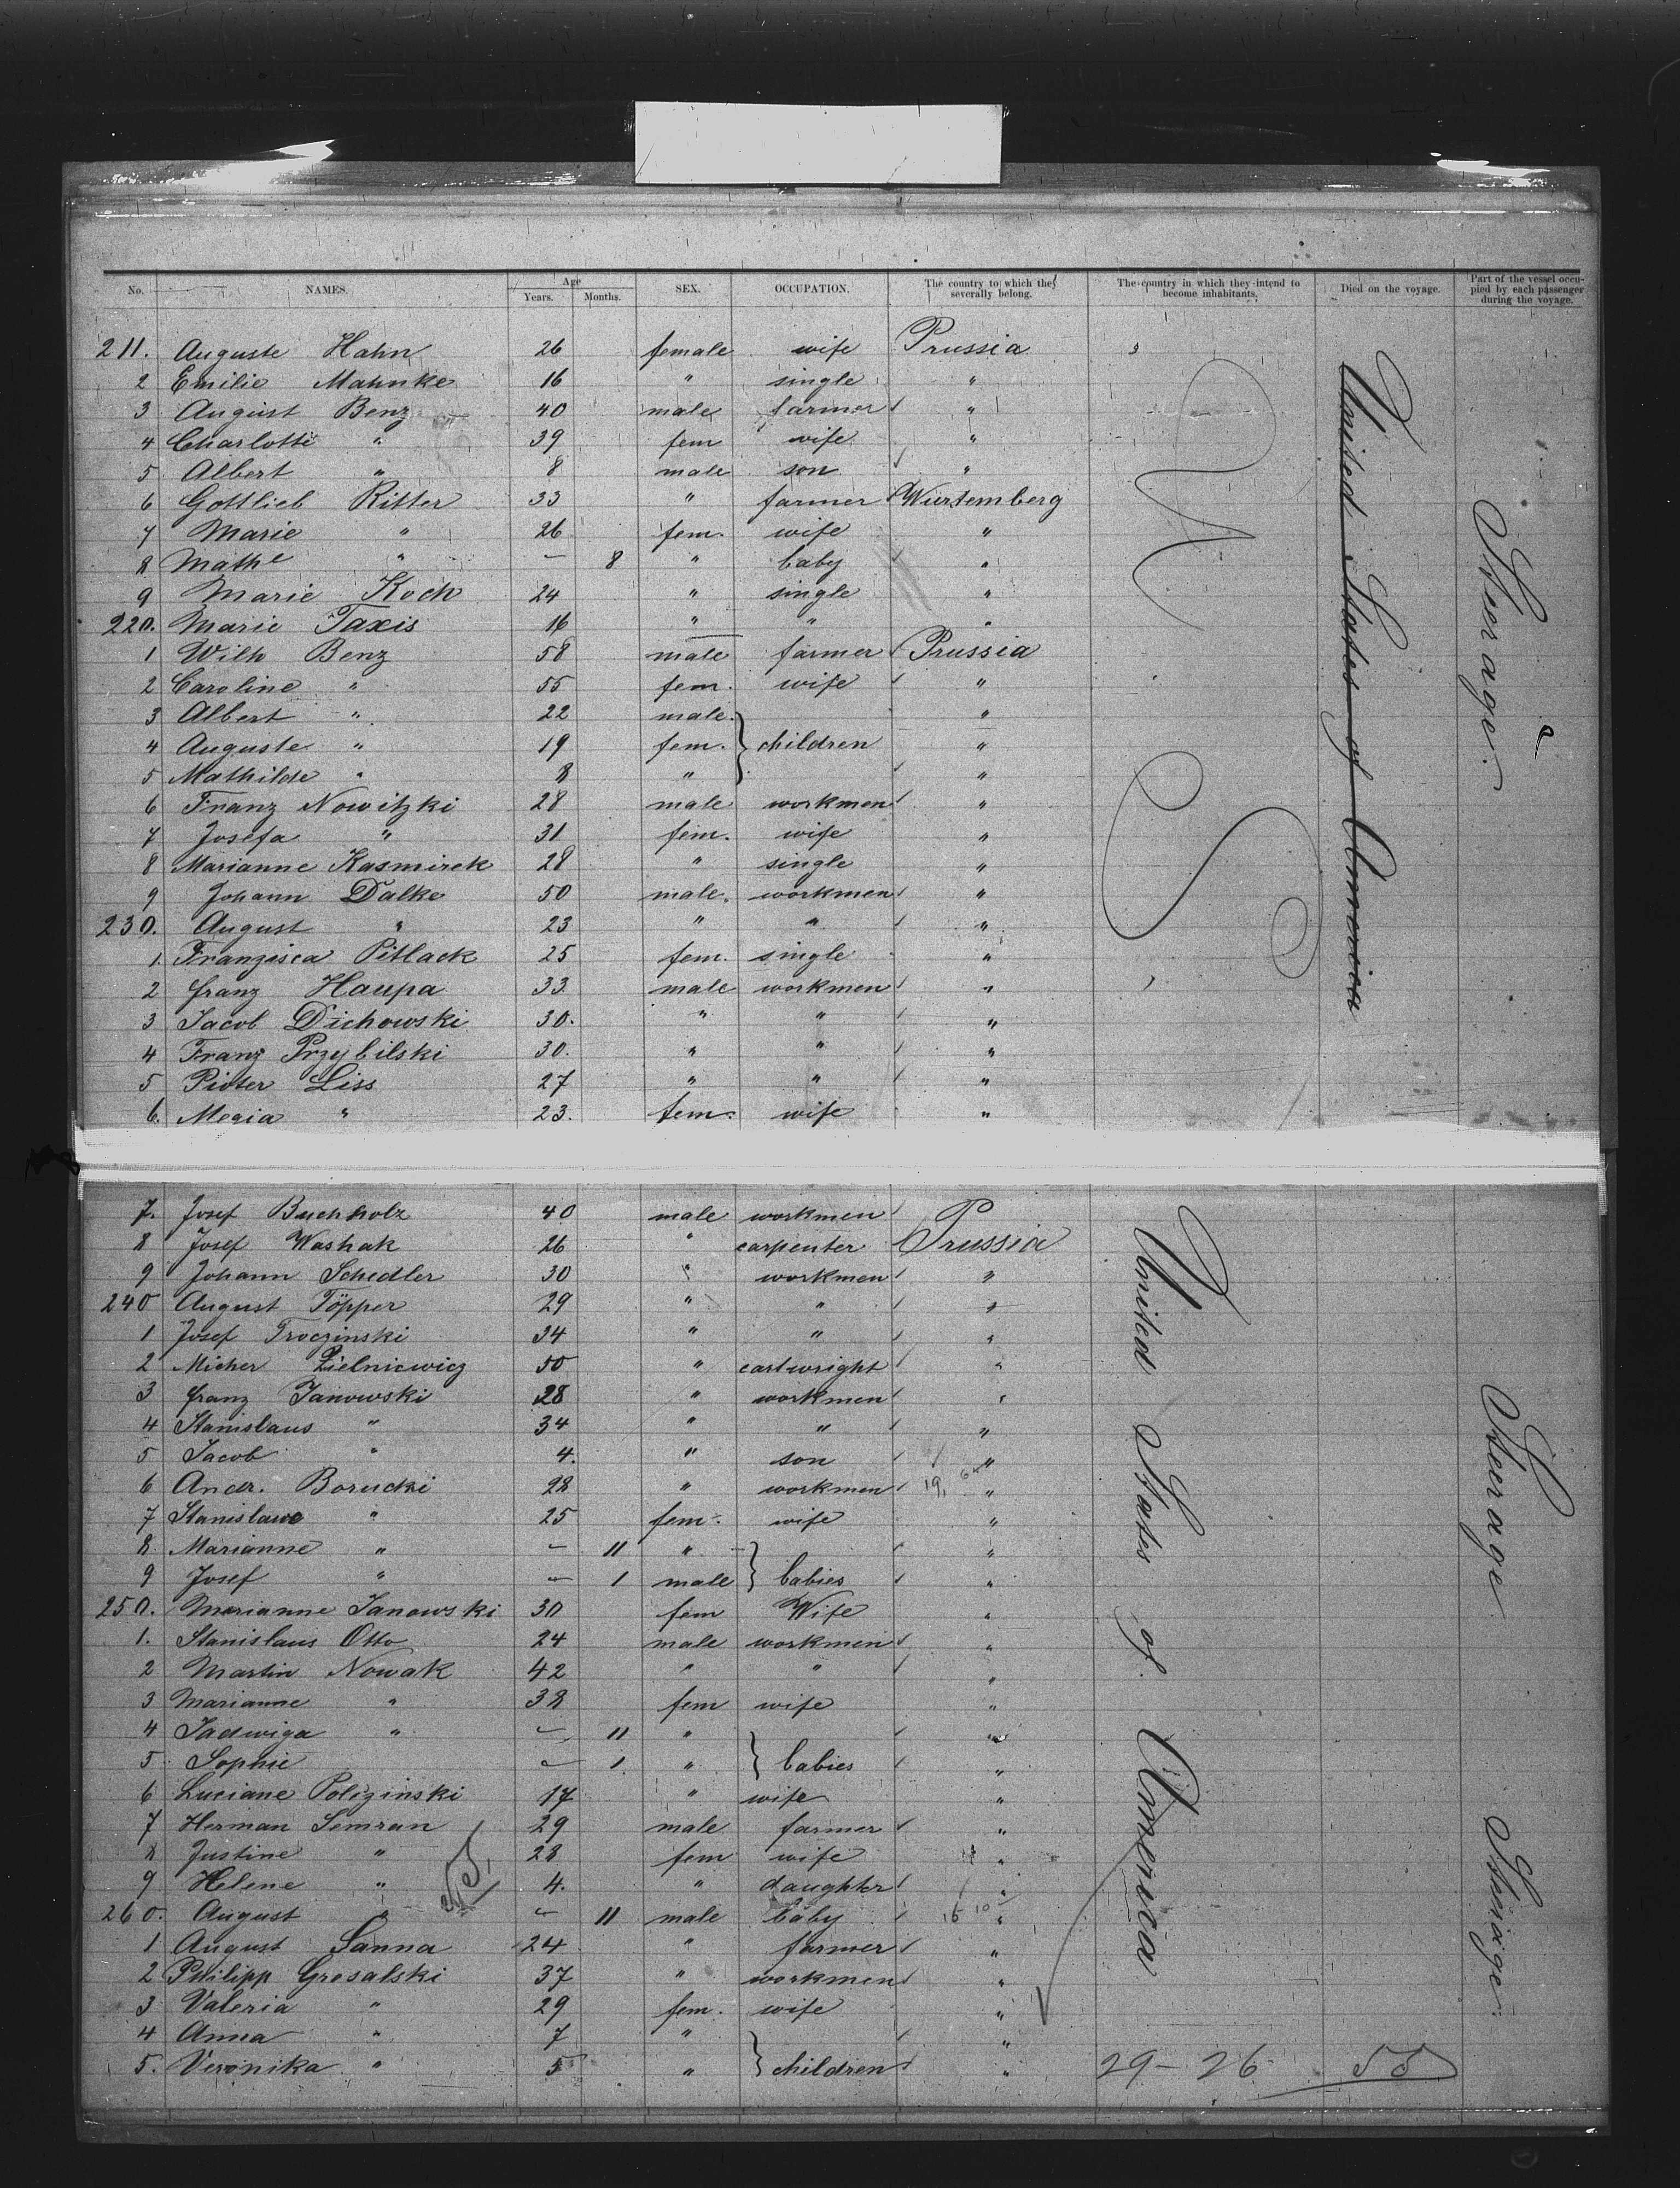 No. NAMES. Age Years. Months. SEX. OCCUPATION. The country to which they severally belong. The country in which they intend to become inhabitants. Died on the voyage. Part of the vessel occupied by each passenger during the voyage.
211. Auguste Hahn 26 female wife Prussia
2 Emilie Mahnke 16 " single "
3 August Benz 40 male farmer "
4 Charlotte " 39 fem wife "
5 Albert " 8 male son "
6 Gottlieb Ritter 33 " farmer Wurtemberg
7 Marie " 26 fem. wife "
8 Mathe " – 8 " baby "
9 Marie Koch 24 " single "
220. Marie Taxis 16 " " "
1 Wilh Benz 58 male farmer Prussia
2 Caroline " 55 fem. wife "
3 Albert " 22 male. "
4 Auguste " 19 fem. children "
5 Mathilde " 8 " "
6 Franz Nowitzki 28 male workmen "
7 Josefa " 31 fem. wife "
8 Marianne Kasmirek 28 " single "
9 Johann Dalke 50 male. workmen "
230. August " 23 " " "
1. Franzisca Pitlack 25 fem. single "
2 franz Haupa 33 male workmen "
3 Jacob Dichowski 30. " " "
4 Franz Przybilski 30. " " "
5 Pioter Liss 27 " " "
6. Megia " 23. fem. wife "
United States of America
Steerage.
7. Josef Buchholz 40 male workmen
8 Josef Washak 26 " carpenter Prussia
9 Johann Schedler 30 " workmen "
240 August Töpper 29 " " "
1 Josef Troczinski 34 " " "
2 Micher Zielniewicz 50 " cartwright "
3 franz Janowski 28 " workmen "
4 Stanislaus " 34 " " "
5 Jacob " 4. " son "
6 Andr. Borucki 28 " workmen "
7 Stanislawe " 25 fem. wife "
8 Marianne " – 11 " "
9 Josef " – 1 male babies "
250. Marianne Janowski 30 fem Wife "
1. Stanislaus Otto 24 male workmen "
2 Martin Nowak 42 " " "
3 Marianne " 38 fem wife "
4 Jadwiga " – 11 " "
5 Sophie – 1 " babies "
6 Luciane Polizinski 17 " wife "
7 Herman Semran 29 male farmer "
8 Justine " 28 fem wife "
9 Helene " 4. " daughter "
260. August " – 11 male baby "
1 August Sanna 24 " farmer "
2 Philipp Gresalski 37 " workmen "
3 Valeria " 29 fem. wife "
4 Anna " 7 " "
5. Veronika " 5 " children "
United States of America
Steerage
Steerage.
29 – 26 55